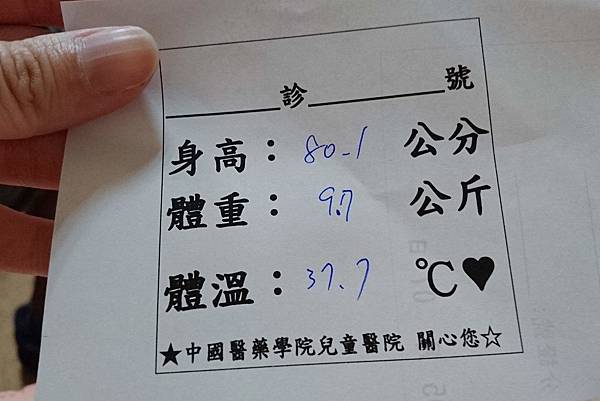 ______診______號
身高：80.1 公分
體重：9.7 公斤
體溫：37.7 ℃♥
★中國醫藥學院兒童醫院 關心您☆